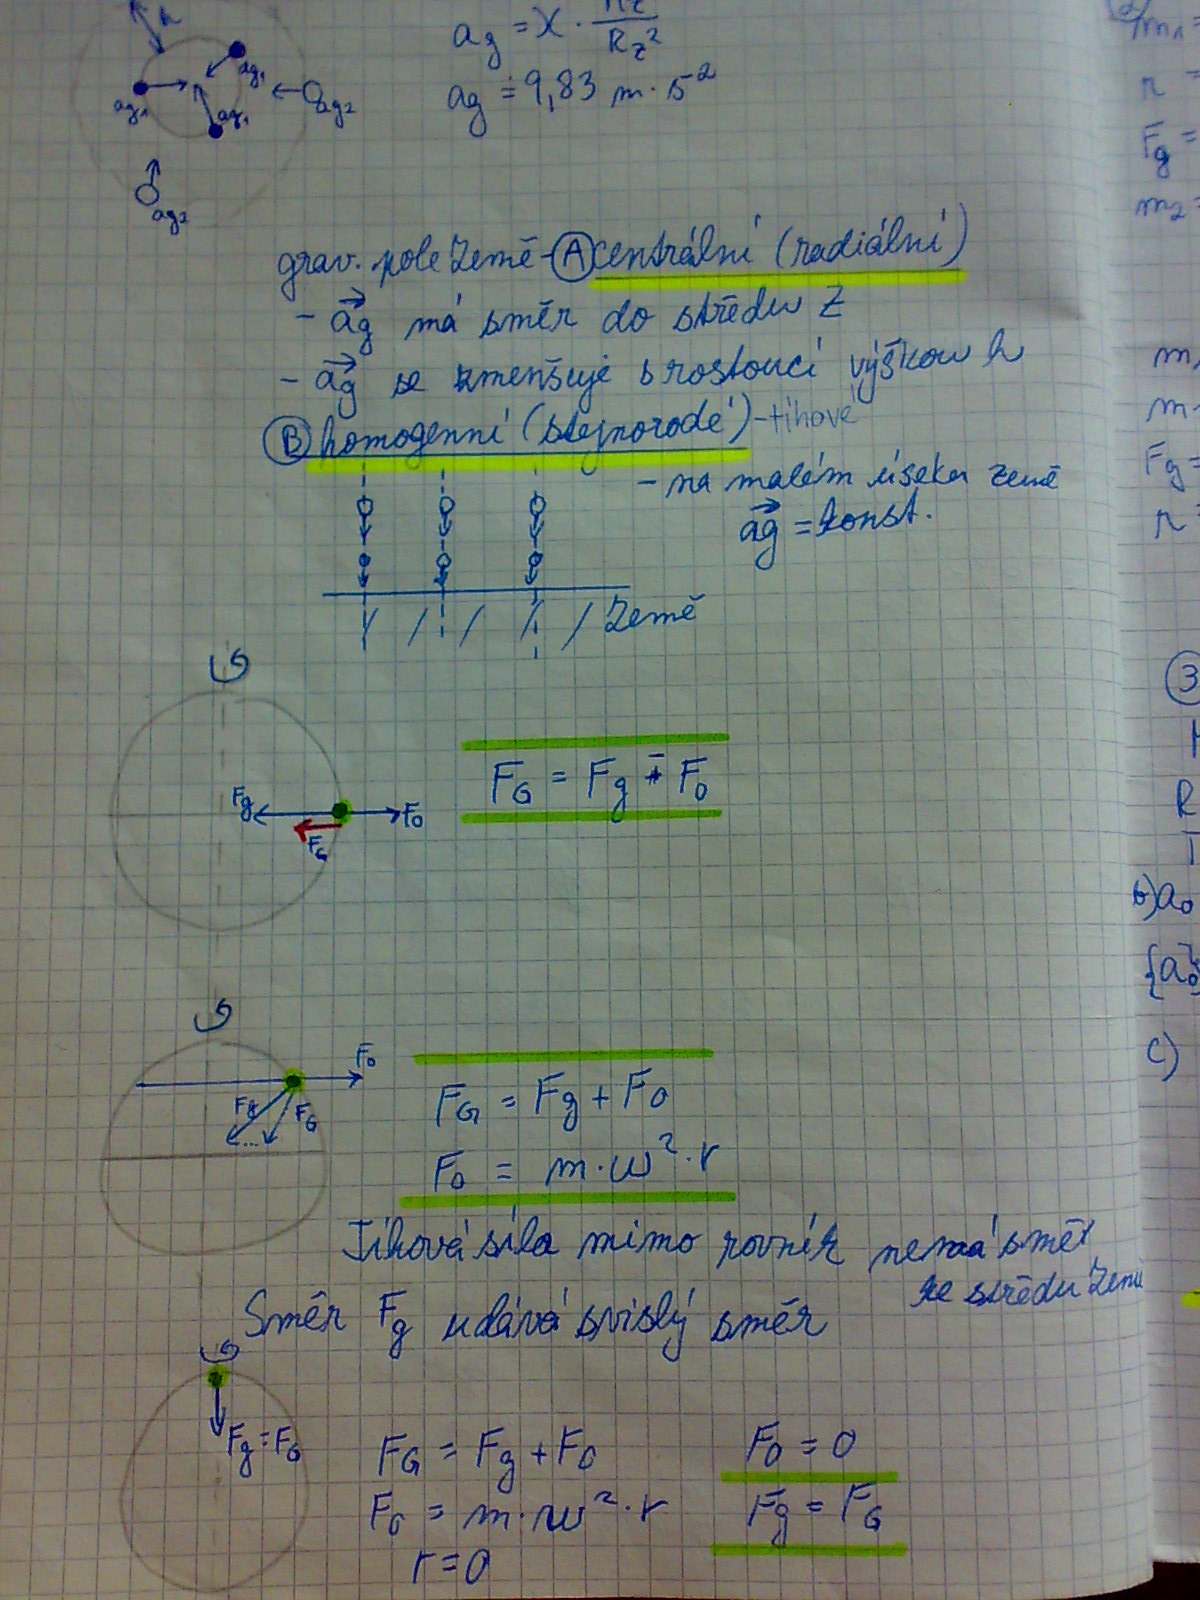 h
ag = ϰ · Mz / Rz²
ag ≐ 9,83 m·s⁻²
ag1
ag1
ag1
ag2
ag2
grav. pole Země - Ⓐ centrální (radiální)
- ag má směr do středu Z
- ag se zmenšuje s rostoucí výškou h
Ⓑ homogenní (stejnorodé) - tíhové
- na malém úseku země
ag = konst.
Země
Fg
F0
FG
FG = Fg - F0
F0
Fg
FG
FG = Fg + F0
F0 = m·ω²·r
Tíhová síla mimo rovník nemá směr
ke středu Země
Směr Fg udává svislý směr
Fg = FG
FG = Fg + F0
F0 = 0
F0 = m·ω²·r
Fg = FG
r = 0
m1 =
r =
Fg =
m2 =
m
m
Fg =
r =
③
R
b) a0
{a0}
c)